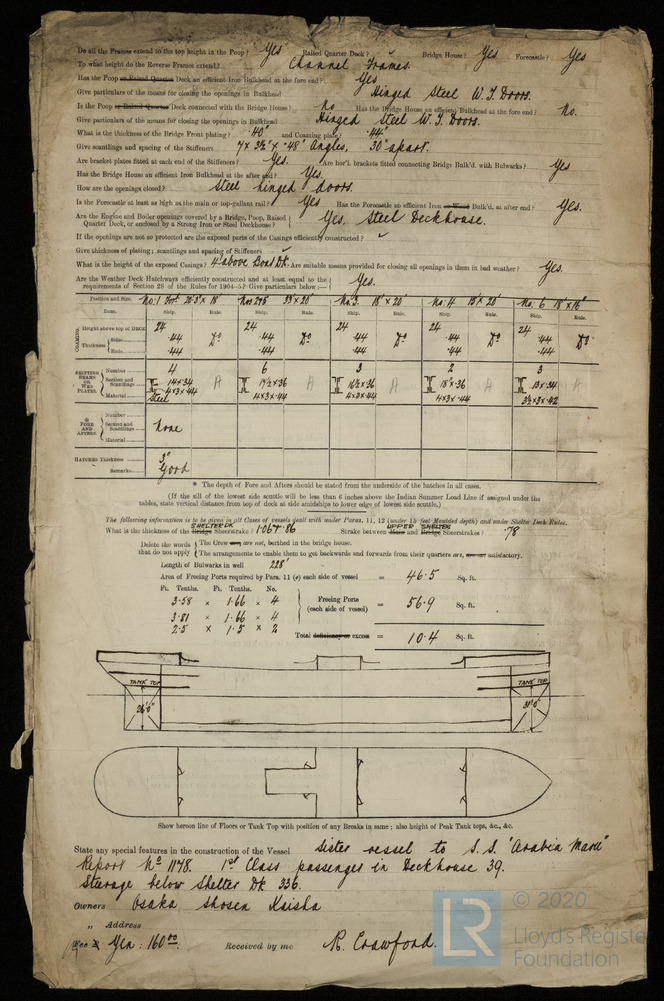 Do all the Frames extend to the top height in the Poop? Yes Raised Quarter Deck? Bridge House? Yes Forecastle? Yes
To what height do the Reverse Frames extend? Channel Frames.
Has the Poop or Raised Quarter Deck an efficient Iron Bulkhead at the fore end? Yes
Give particulars of the means for closing the openings in Bulkhead Hinged Steel W.T. Doors.
Is the Poop or Raised Quarter Deck connected with the Bridge House? No Has the Bridge House an efficient Bulkhead at the fore end? No.
Give particulars of means for closing the openings in Bulkhead Hinged Steel W.T. Doors.
What is the thickness of the Bridge Front plating? .40" and Coaming plate? .44"
Give scantlings and spacing of the Stiffeners 7 x 3½ x .48" Angles, 30" apart.
Are bracket plates fitted at each end of the Stiffeners? Yes. Are hor'l. brackets fitted connecting Bridge Bulk'd. with Bulwarks? Yes
Has the Bridge House an efficient Iron Bulkhead at the after end? Yes.
How are the openings closed? Steel hinged doors.
Is the Forecastle at least as high as the main or top-gallant rail? Yes Has the Forecastle an efficient Iron or Wood Bulk'd. at after end? Yes.
Are the Engine and Boiler openings covered by a Bridge, Poop, Raised
Quarter Deck, or enclosed by a Strong Iron or Steel Deckhouse? Yes. Steel Deckhouse.
If the openings are not so protected are the exposed parts of the Casings efficiently constructed?
Give thickness of plating; scantlings and spacing of Stiffeners
What is the height of the exposed Casings? 4' above Boat Dk. Are suitable means provided for closing all openings in them in bad weather? Yes.
Are the Weather Deck Hatchways efficiently constructed and at least equal to the
requirements of Section 28 of the Rules for 1904-5? Give particulars below:— Yes.
Position and Size. No: 3 18' x 20' No: 4 18' x 20' No: 6 18' x 16'
Item. Ship. Rule. Ship. Rule. Ship. Rule. Ship. Rule. Ship. Rule.
COAMING.
Height above top of DECK 24 24 24 24 24
Thickness Sides .44 Do .44 Do .44 Do .44 Do .44 Do
Ends .44 .44 .44 .44 .44
SHIFTING BEAMS OR WEB PLATES.
Number 4 6 3 2 3
Section and Scantlings 14 x 34 A 17½ x 36 A 16½ x 36 A 18 x 36 A 13 x 34 A
4 x 3 x .44 4 x 3 x .44 4 x 3 x .44 4 x 3 x .44 3½ x 3 x .42
Material Steel
* FORE AND AFTERS.
Number
Section and Scantlings None
Material
HATCHES Thickness 3"
Remarks Good
* The depth of Fore and Afters should be stated from the underside of the hatches in all cases.
(If the sill of the lowest side scuttle will be less than 6 inches above the Indian Summer Load Line if assigned under the
tables, state vertical distance from top of deck at side amidships to lower edge of lowest side scuttle.)
The following information is to be given in all Cases of vessels dealt with under Paras. 11, 12 (under 15 feet Moulded depth) and under Shelter Deck Rules.
SHELTER DK UPPER SHELTER
What is the thickness of the Bridge Sheerstrake? 1.06 + .86 Strake between Main and Bridge Sheerstrakes? .78
Delete the words that do not apply
The Crew are, are not, berthed in the bridge house.
The arrangements to enable them to get backwards and forwards from their quarters are, are not satisfactory.
Length of Bulwarks in well 228'
Area of Freeing Ports required by Para. 11 (e) each side of vessel = 46.5 Sq. ft.
Ft. Tenths. Ft. Tenths. No.
3.58 x 1.66 x 4
3.81 x 1.66 x 4
2.5 x 1.5 x 2
Freeing Ports (each side of vessel) = 56.9 Sq. ft.
Total deficiency or excess = 10.4 Sq. ft.
TANK TOP
26'0"
TANK TOP
31'0"
Show hereon line of Floors or Tank Top with position of any Breaks in same; also height of Peak Tank tops, &c., &c.
State any special features in the construction of the Vessel Sister vessel to S.S. "Arabia Maru"
Report No 1178. 1st Class passengers in Deckhouse 39.
Steerage below Shelter Dk 336.
Owners Osaka Shosen Kaisha
" Address
Fee £ Yen: 160.00. Received by me R. Crawford.
LR
© 2020
Lloyd's Register
Foundation